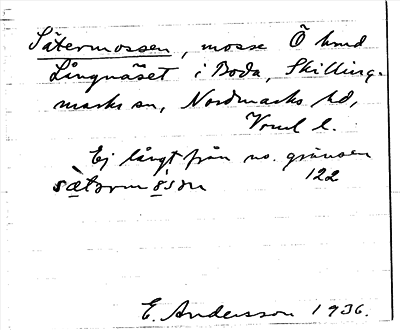 Sätermossen, mosse Ö hmd
Långnäset i Boda, Skillings-
marks sn, Nordmarks hd,
Vrml l.
Ej långt från no. gränsen
122
E. Andersson 1936.